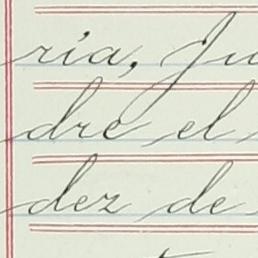 ria, Ju
dre el
dez de